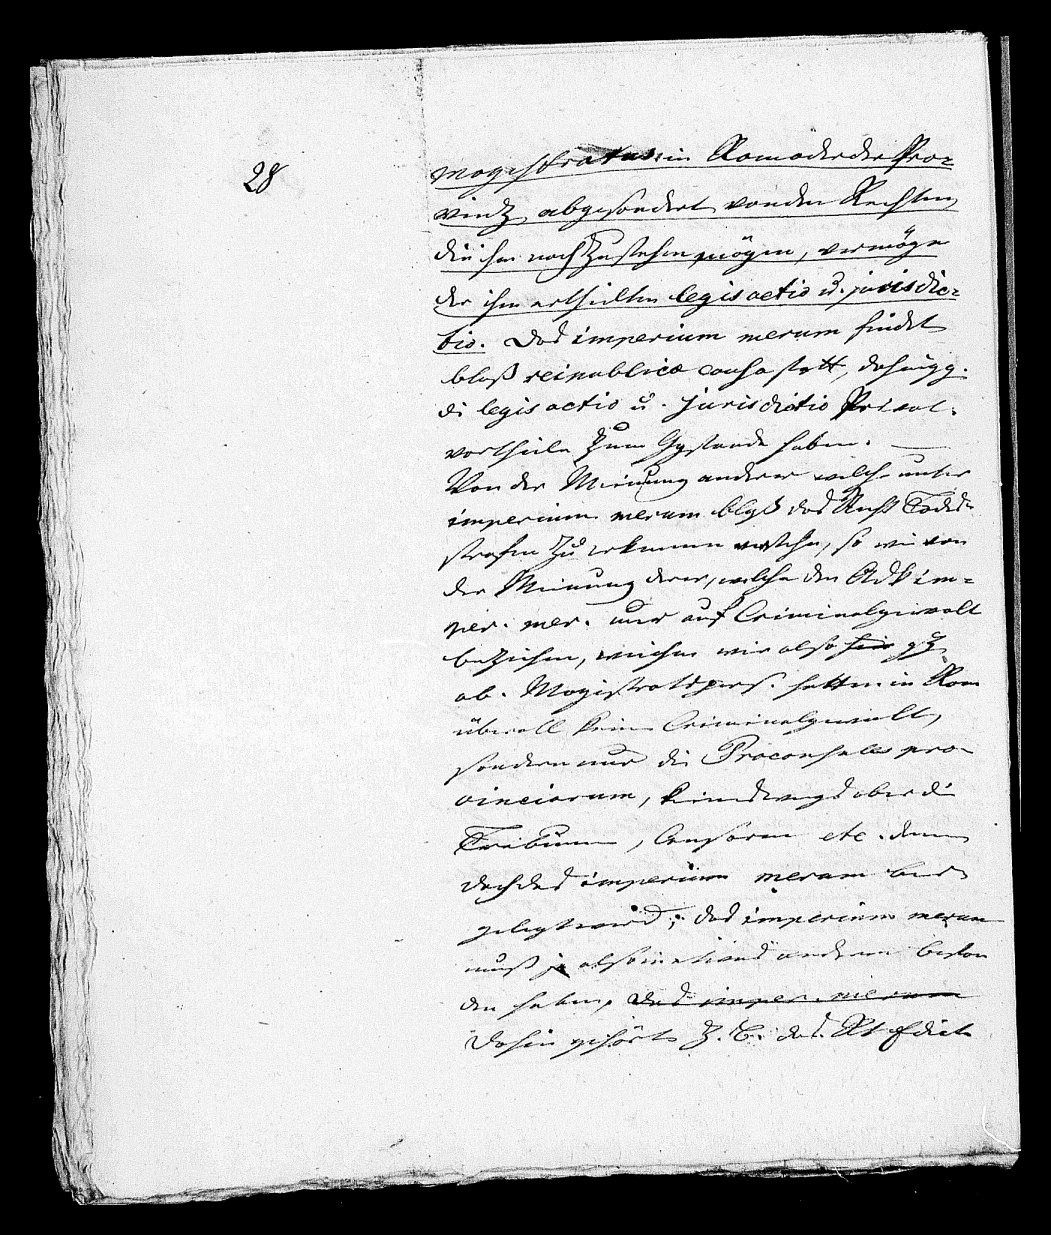 28
magistratus in Roma oder der Pro-
vinz, abgesondert von den Rechten,
die ihm noch zustehen mögen, vermöge
der ihm ertheilten legis actio u. jurisdic-
tio. Das imperium merum findet
bloß reipublicae causa statt, dahingg.
di legis actio u. jurisdictio Privat-
vortheile zum Ggstande haben. —
Von der Meinung anderer welche unter
imperium merum bloß das Recht Todes-
strafen zu erkennen verstehn, so wie von
der Meinung derer, welche den Adk im-
per. mer. nur auf Criminalgewalt
beziehen, weichen wir also hier gz
ab. Magistratspers. hatten in Rom
überall keine Criminalgewalt,
sondern nur di Proconsules pro-
vinciarum, keineswegs aber di
Tribunen, Censoren etc. denen
doch das imperium merum bei
gelegt wird; das imperium merum
muß ja also in etwas anderem bestan
den haben, das imper. merum
Dahin gehört z. B. das Rt Edict